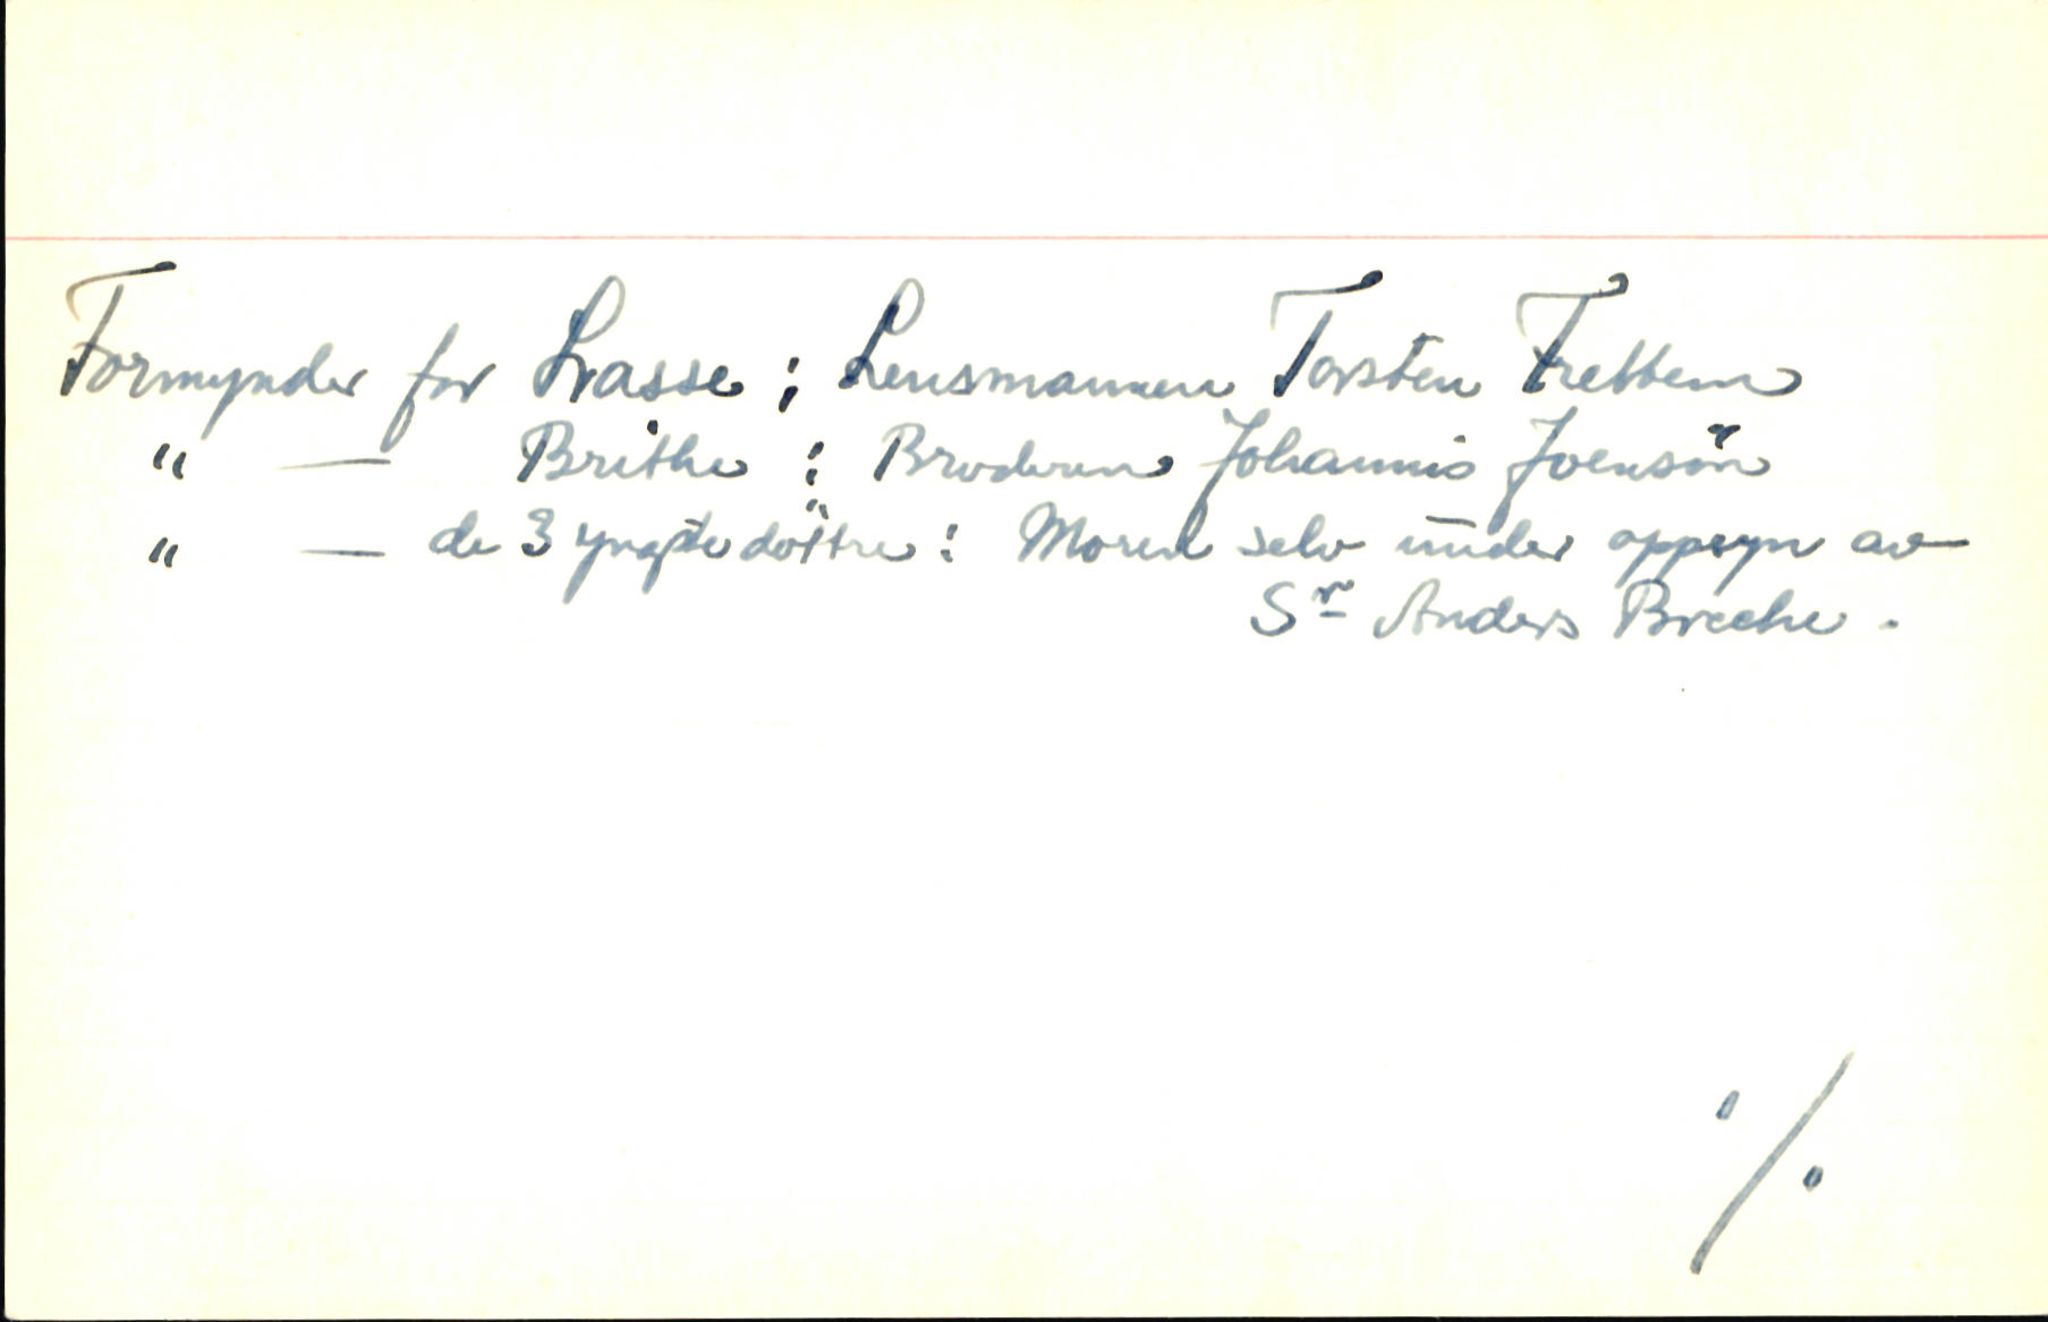 Formynder for Lasse ; Lensmannen Torsten Frettem
" — Brithe : Broderen Johannis Joensön
" — de 3 yngste döttre : Moren selv under oppsyn av
Sr Anders Breche .
./.